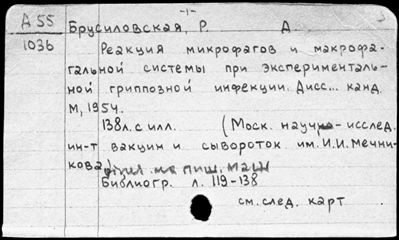 -1-
А 55 Брусиловская, Р. А.
1036
Реакция микрофагов и макрофа-
гальной системы при эксперименталь-
ной гриппозной инфекции. Дисс... канд.
М, 1954.
138 л. с илл. (Моск. научно-исслед.
ин-т вакцин и сывороток им. И.И. Мечни-
кова)
Библиогр. л. 119-138
см. след. карт